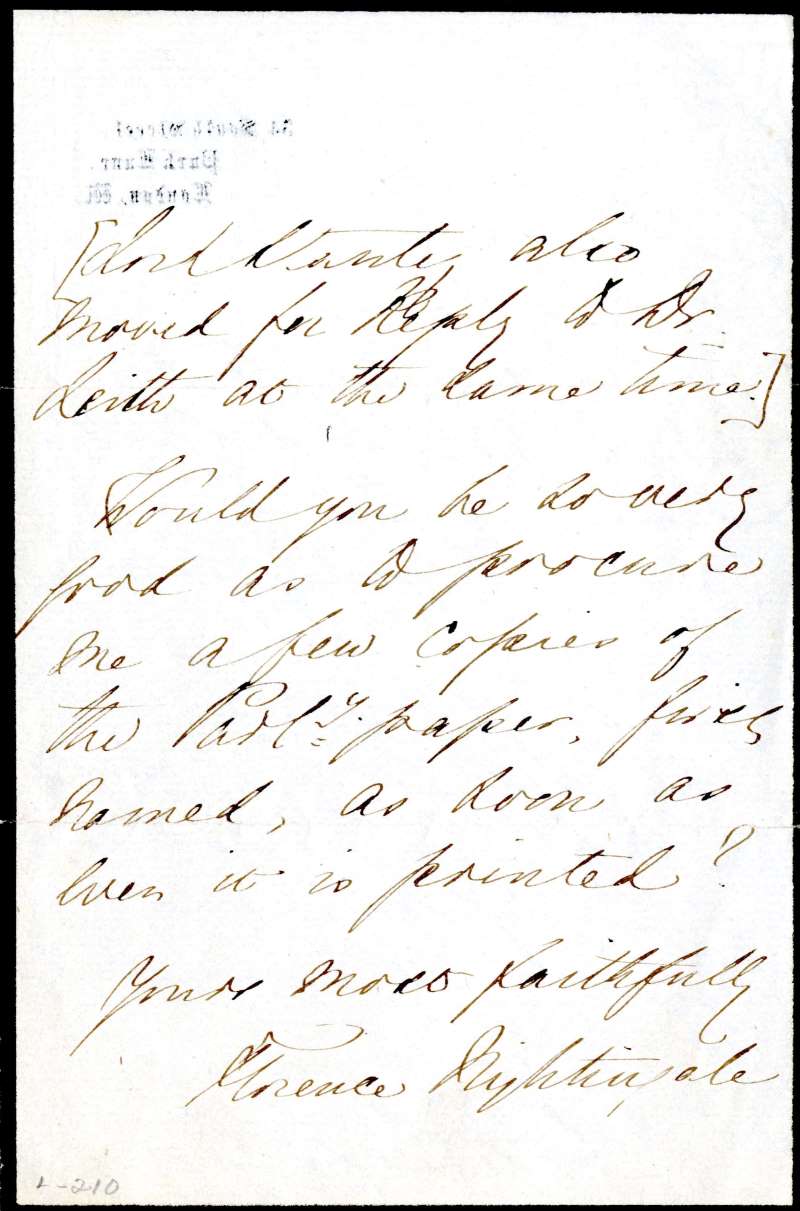 [Lord Stanley also
moved for Reply to Dr.
Leith at the same time.]
Would you be so very
good as to procure
me a few copies of
the Parl^y. paper, first
named, as soon as
ever it is printed?
Yours most faithfully
Florence Nightingale
L-210